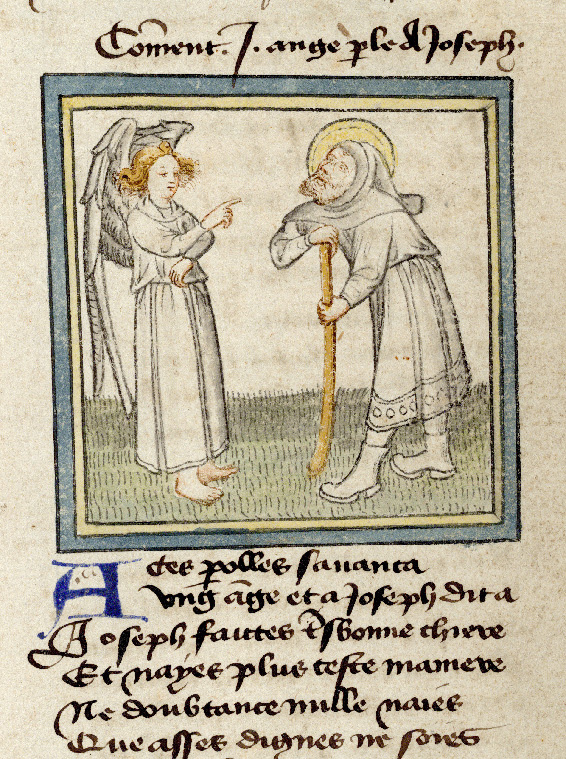 Coment .i. ange ple a Joseph.
A ces polles sauanca
Vng āge et a Joseph dit a
Joseph faites tsbonne chiere
Et nayes plus ceste maniere
Ne doubtance nulle naies
Que asses dignes ne soies